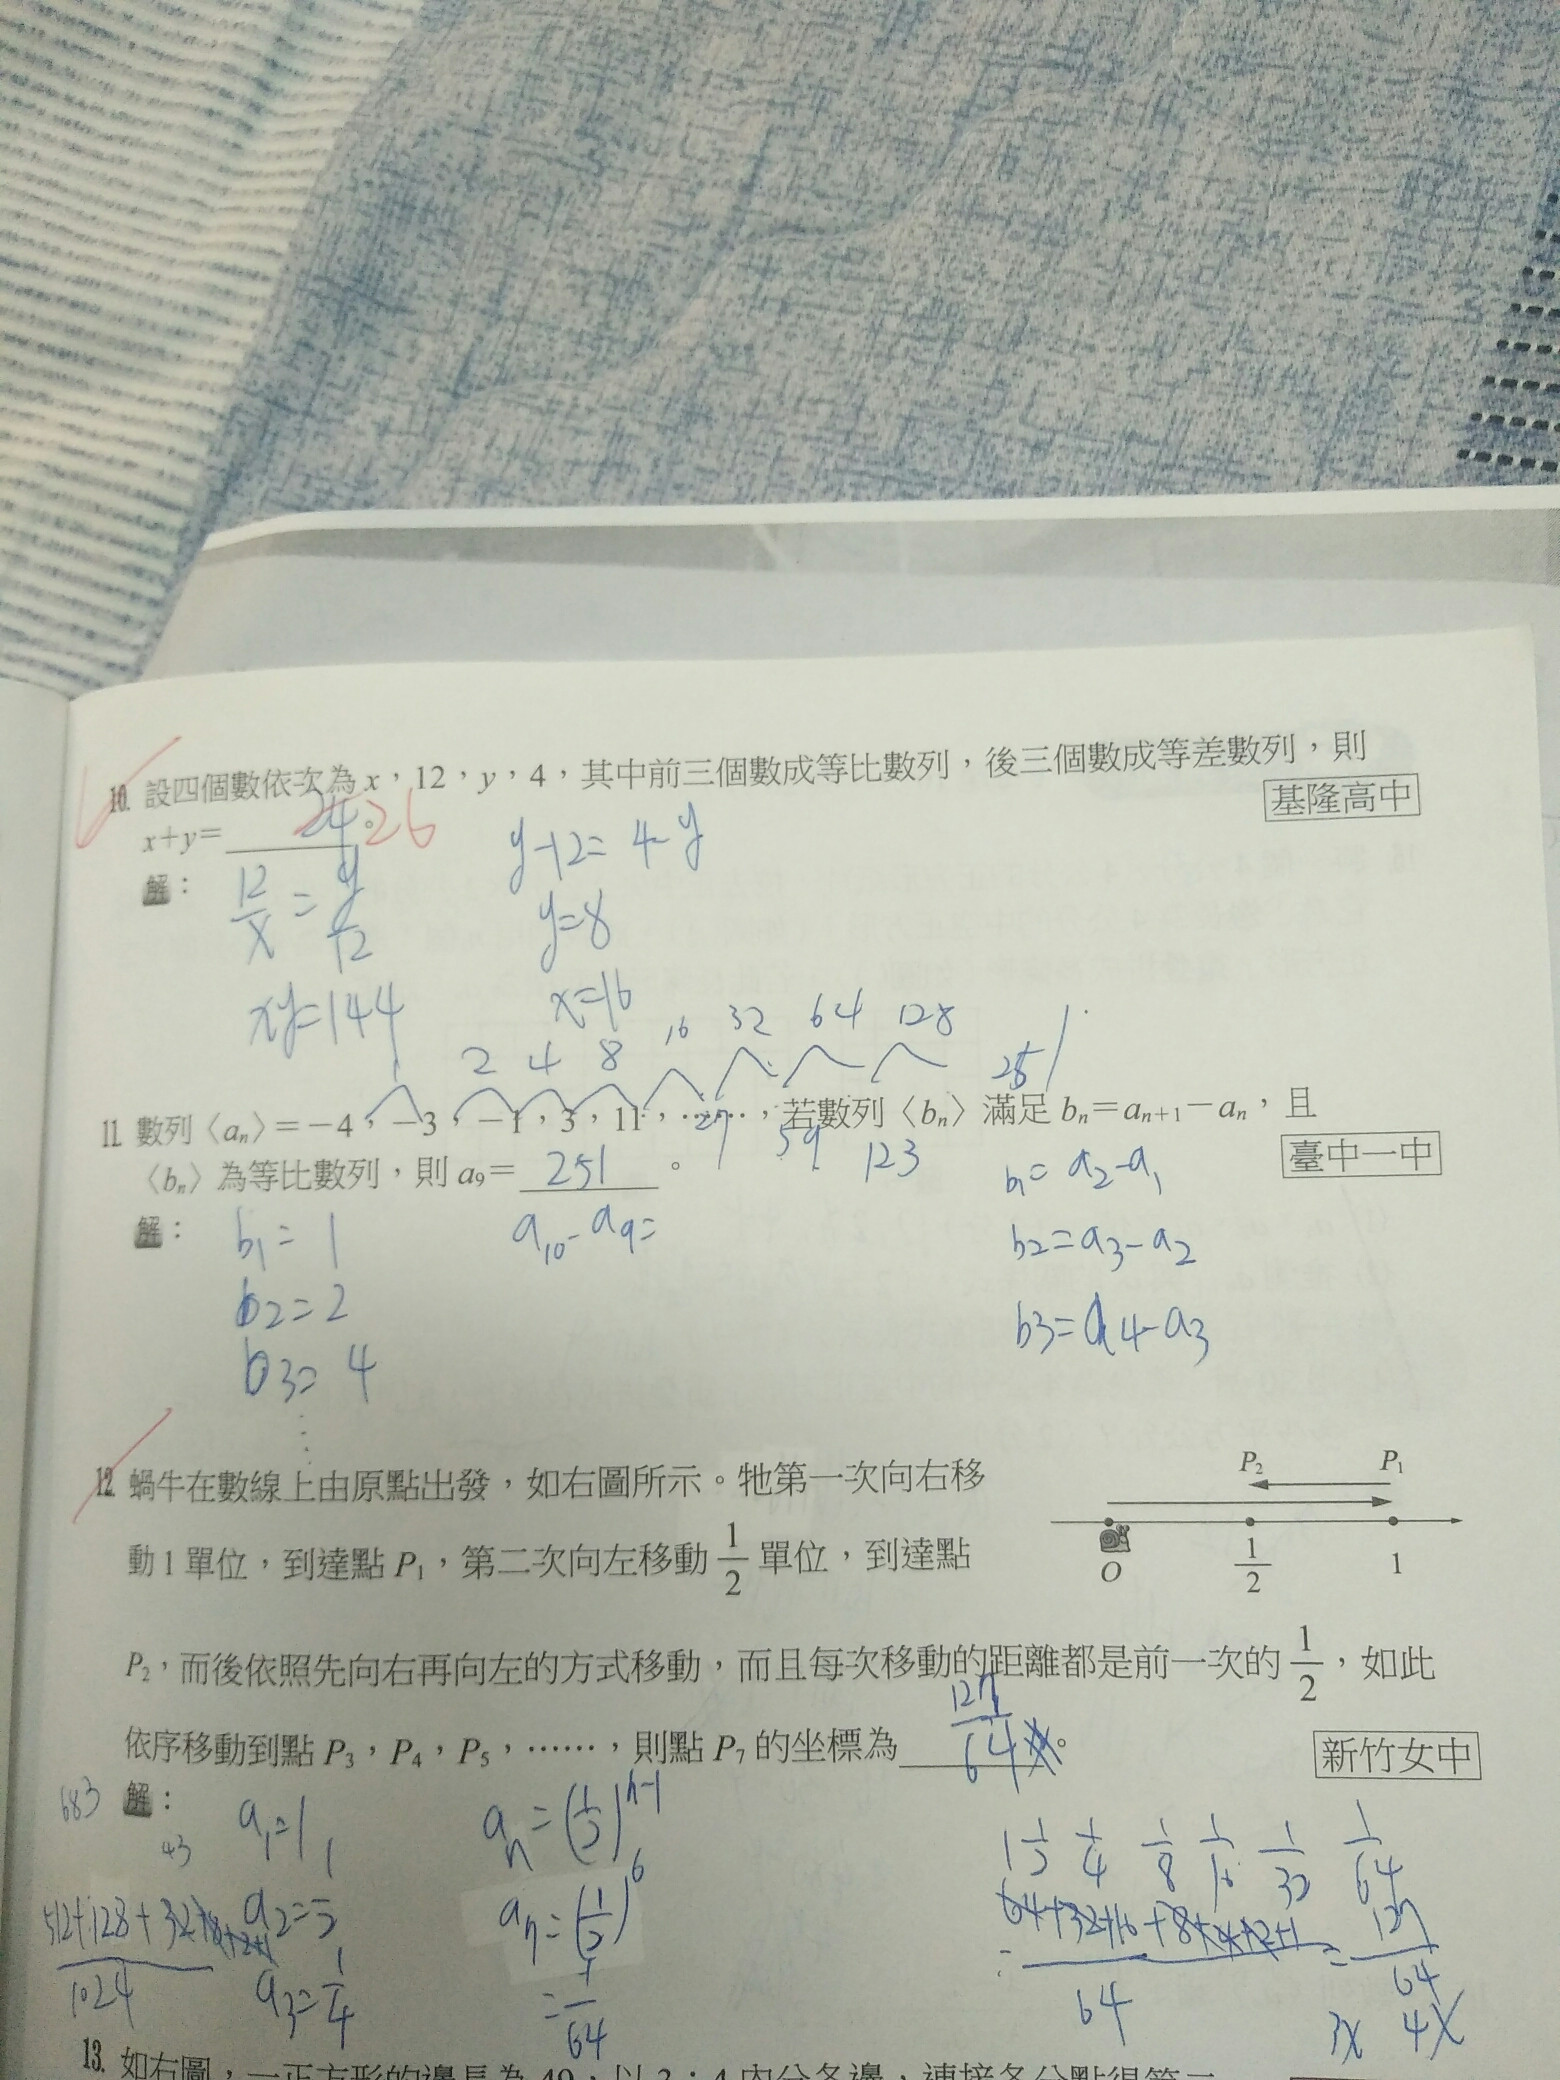 10. 設四個數依次為 x，12，y，4，其中前三個數成等比數列，後三個數成等差數列，則
x+y= 24。26
基隆高中
解：
12/x = y/12
xy=144
y-12=4-y
y=8
x=16
1 2 4 8 16 32 64 128
251
11. 數列〈aₙ〉=-4，-3，-1，3，11，……，若數列〈bₙ〉滿足 bₙ=aₙ₊₁-aₙ，且
27 59 123
〈bₙ〉為等比數列，則 a₉= 251 。
臺中一中
解：
b₁=1
b₂=2
b₃=4
a₁₀-a₉=
b₁=a₂-a₁
b₂=a₃-a₂
b₃=a₄-a₃
12. 蝸牛在數線上由原點出發，如右圖所示。牠第一次向右移
動 1 單位，到達點 P₁，第二次向左移動 1/2 單位，到達點
P₂ P₁
O 1/2 1
P₂，而後依照先向右再向左的方式移動，而且每次移動的距離都是前一次的 1/2，如此
依序移動到點 P₃，P₄，P₅，……，則點 P₇ 的坐標為 127/64 。
新竹女中
683
解：
43
a₁=1
a₂=1/2
a₃=1/4
512+128+32+8+2+1
1024
aₙ=(1/2)ⁿ⁻¹
a₇=(1/2)⁶
=1/64
1 1/2 1/4 1/8 1/16 1/32 1/64
=64+32+16+8+4+2+1/64 = 127/64
3x 4x
13. 如右圖，一正方形的邊長為 49，以 3：4 內分各邊，連接各分點得第二